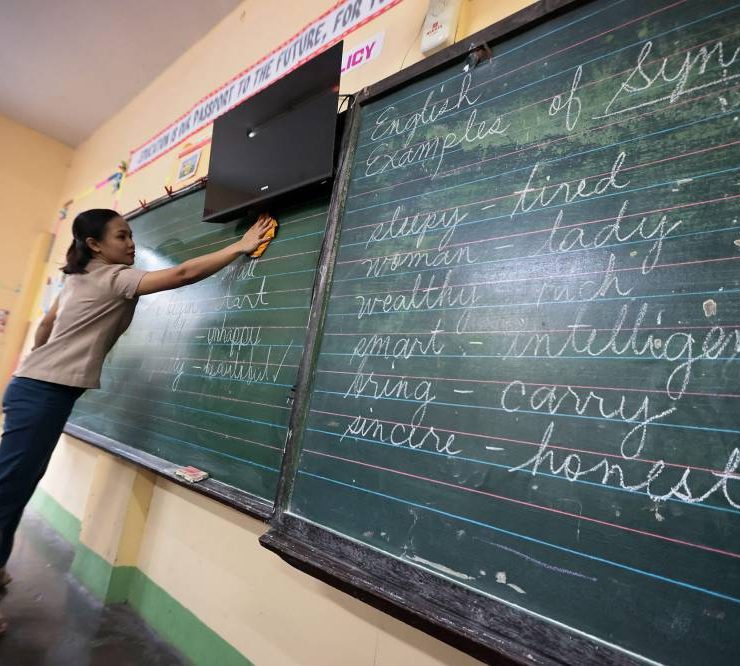 EDUCATION IS OUR PASSPORT TO THE FUTURE, FOR
ICY
English
Examples of Syn
sleepy - tired
woman - lady
wealthy rich
smart - intelligen
bring - carry
sincere - honest
tart
- unhappy
y - beautiful